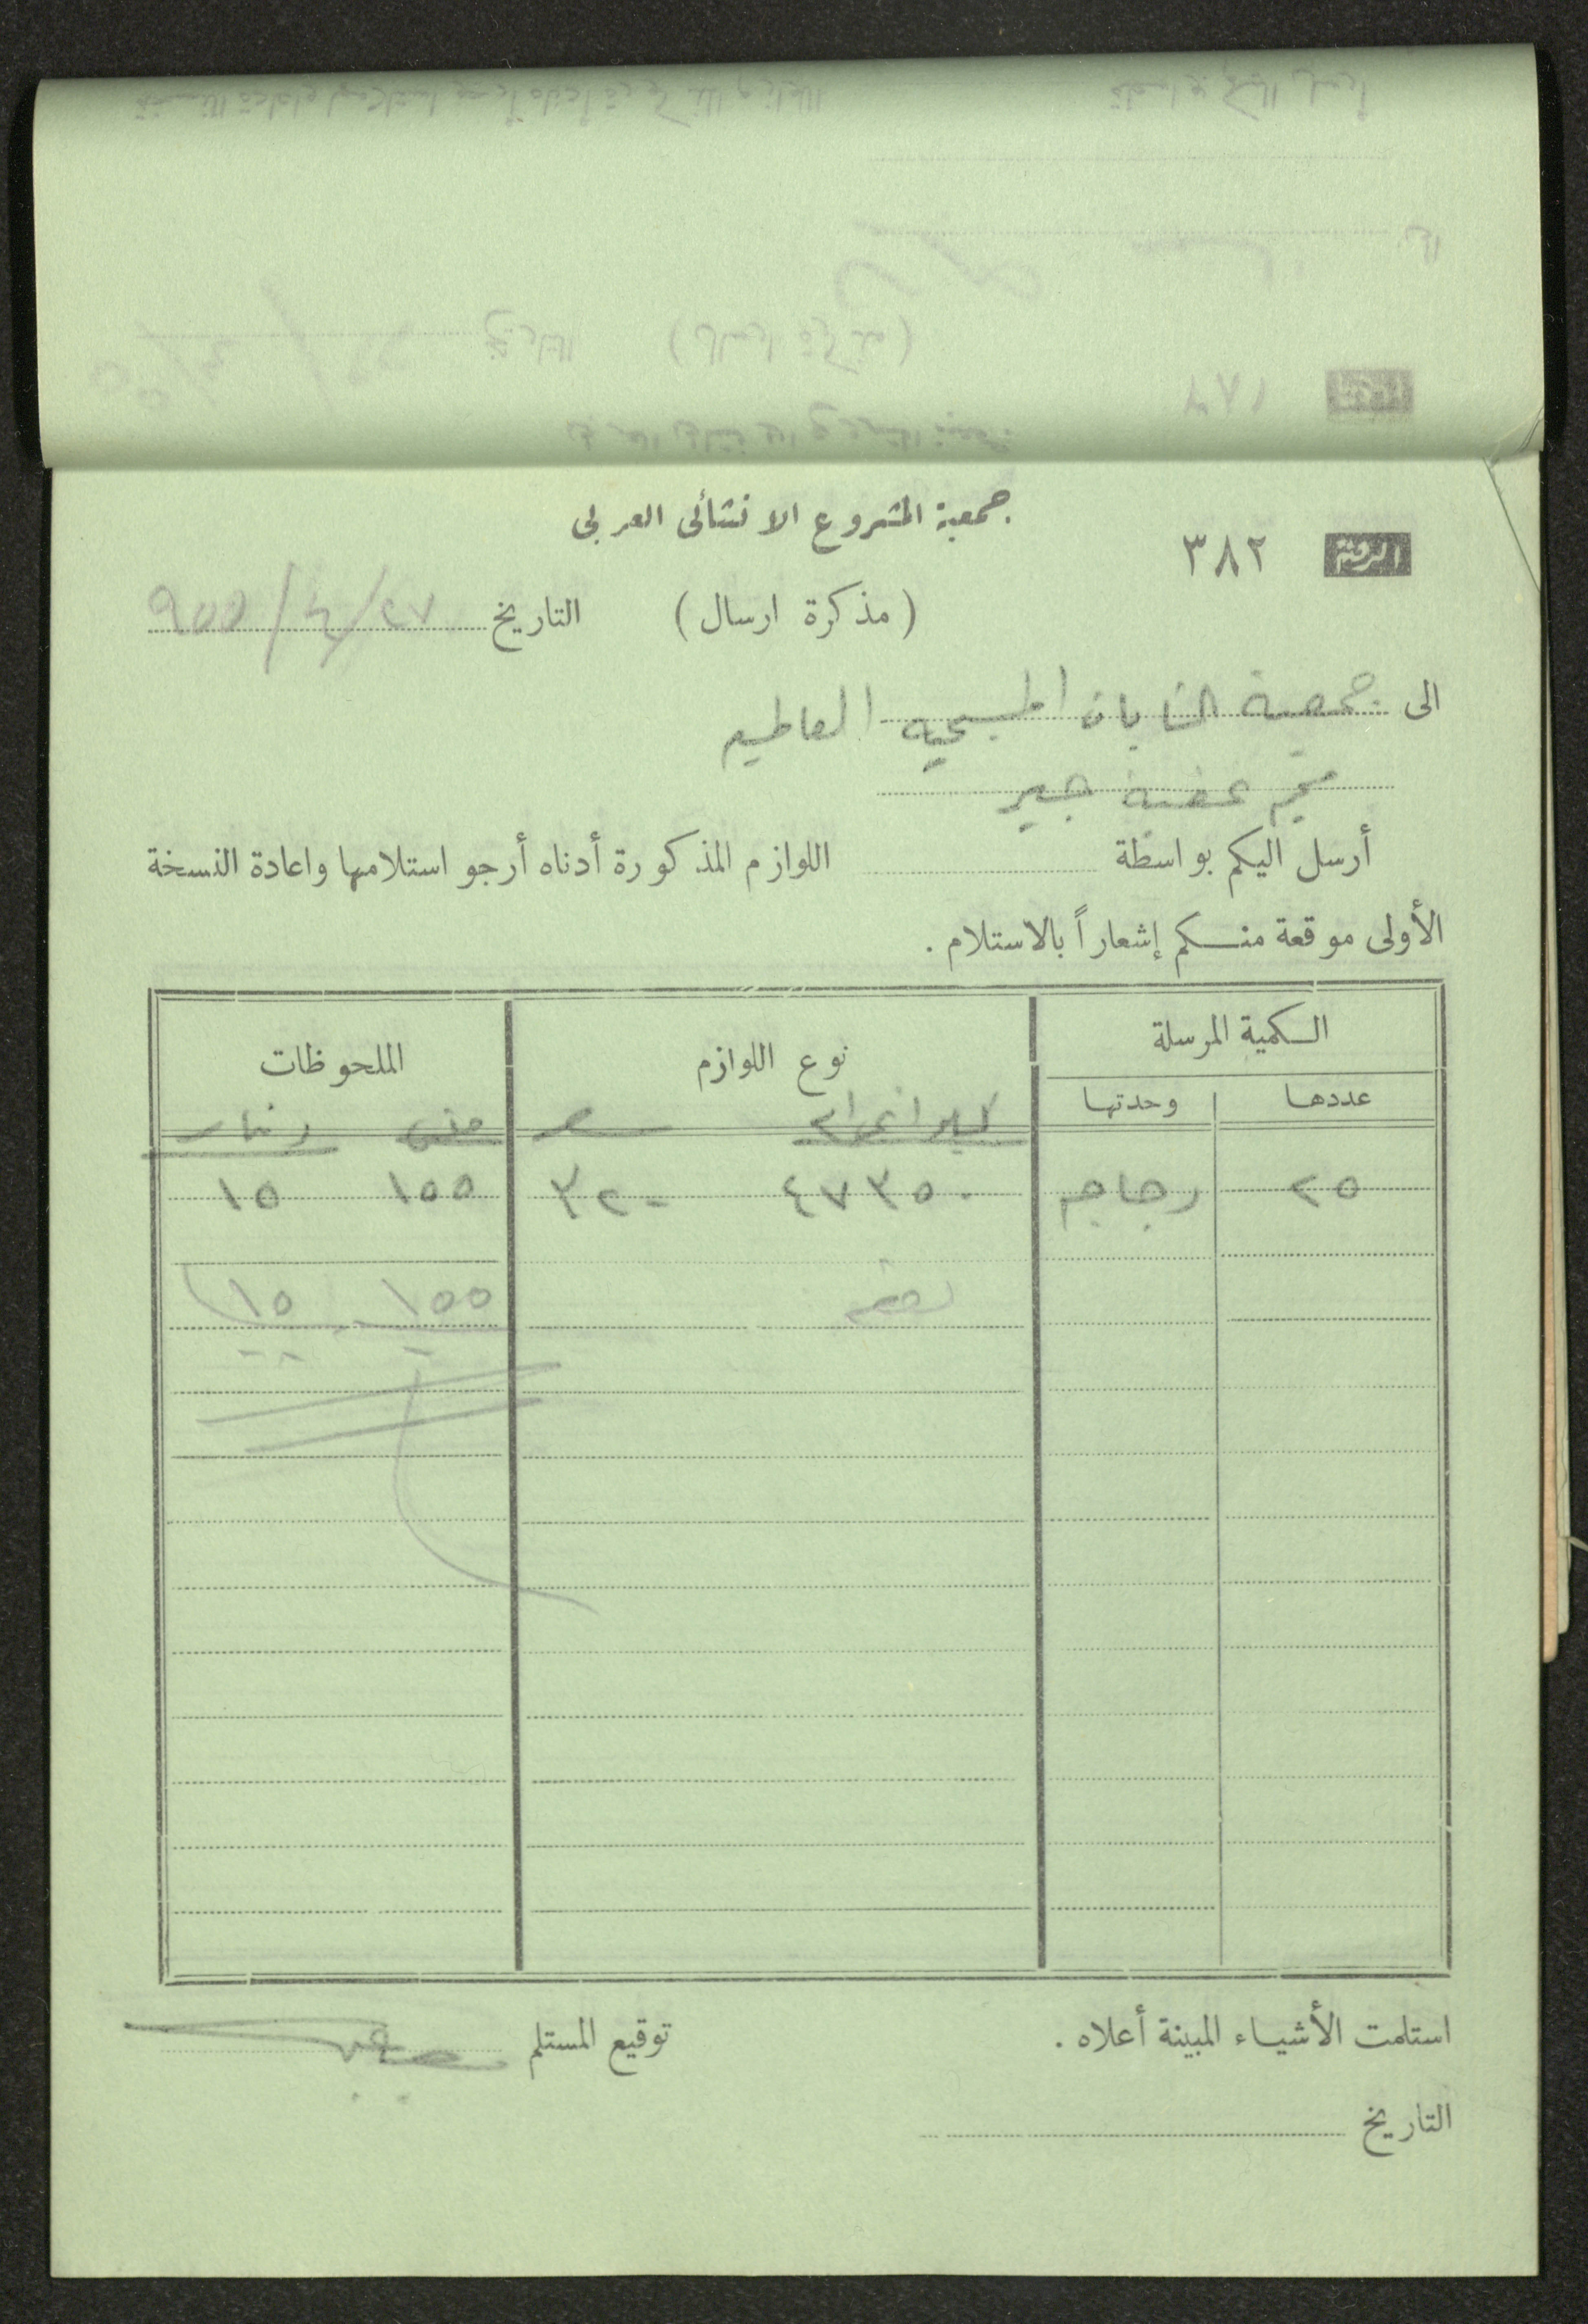 جمعية المشروع الانشائى العربى
الرقم ٣٨٢
(مذكرة ارسال) التاريخ ٢٧/٤/٩٥٥
الى جمعية الشابات المسيحيه العالميه
مخيم عقبة جبر
أرسل اليكم بواسطة اللوازم المذكورة أدناه أرجو استلامها واعادة النسخة
الأولى موقعة منكم إشعاراً بالاستلام .
الكمية المرسلة نوع اللوازم الملحوظات
عددها وحدتها
كيلو غرام سعر فلس دينار
٢٥ دجاج ٤٧٣٥٠ ٣٢٠ ١٥٥ ١٥
١٥٥ ١٥
استلمت الأشياء المبينة أعلاه . توقيع المستلم
التاريخ